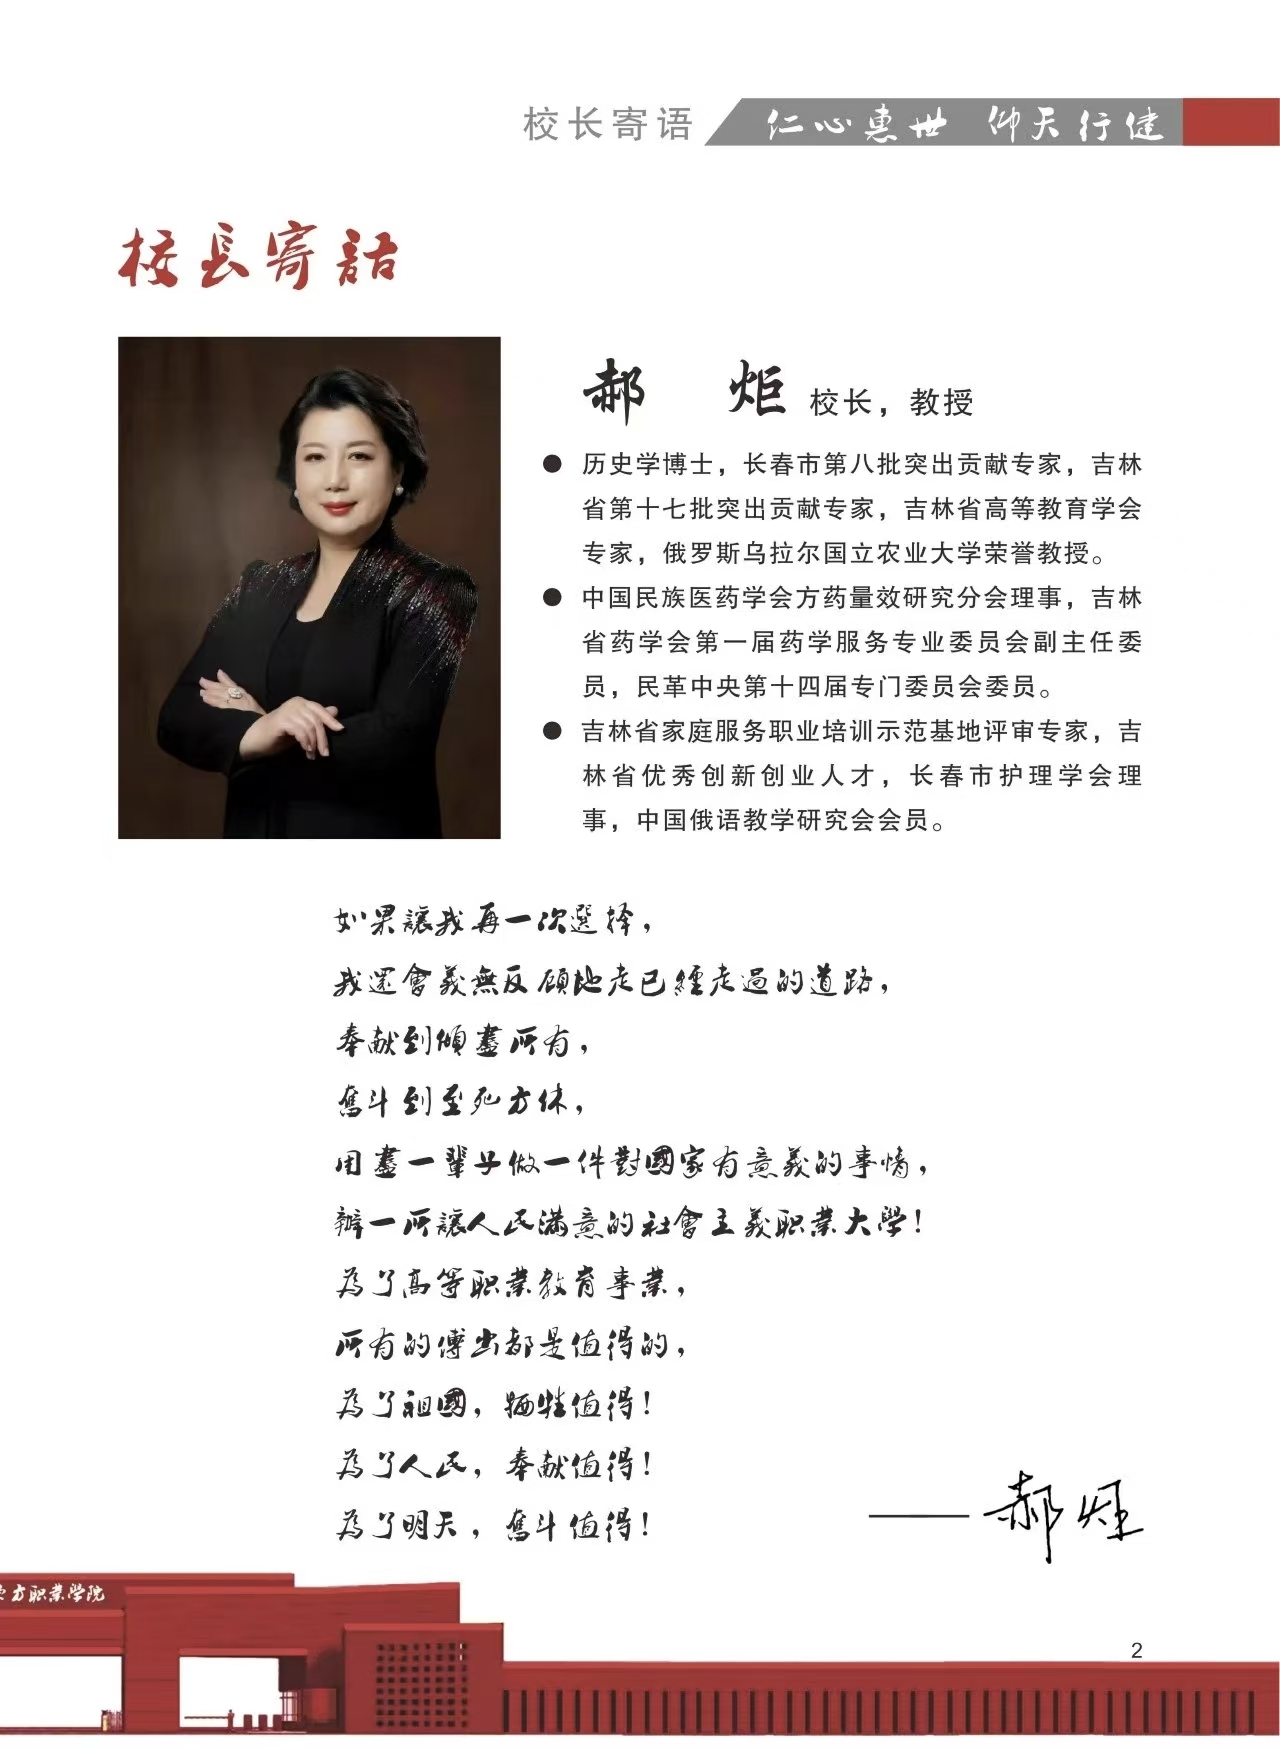 校长寄语
仁心惠世 仰天行健
校長寄語
郝 炬 校长，教授
● 历史学博士，长春市第八批突出贡献专家，吉林
省第十七批突出贡献专家，吉林省高等教育学会
专家，俄罗斯乌拉尔国立农业大学荣誉教授。
● 中国民族医药学会方药量效研究分会理事，吉林
省药学会第一届药学服务专业委员会副主任委
员，民革中央第十四届专门委员会委员。
● 吉林省家庭服务职业培训示范基地评审专家，吉
林省优秀创新创业人才，长春市护理学会理
事，中国俄语教学研究会会员。
如果讓我再一次選择，
我還會義無反顧地走已經走過的道路，
奉献到傾盡所有，
奮斗到至死方休，
用盡一輩子做一件對國家有意義的事情，
辦一所讓人民滿意的社會主義职業大學！
為了高等职業教育事業，
所有的傅出都是值得的，
為了祖國，牺牲值得！
為了人民，奉献值得！
為了明天，奮斗值得！
——郝炬
东方职業学院
2